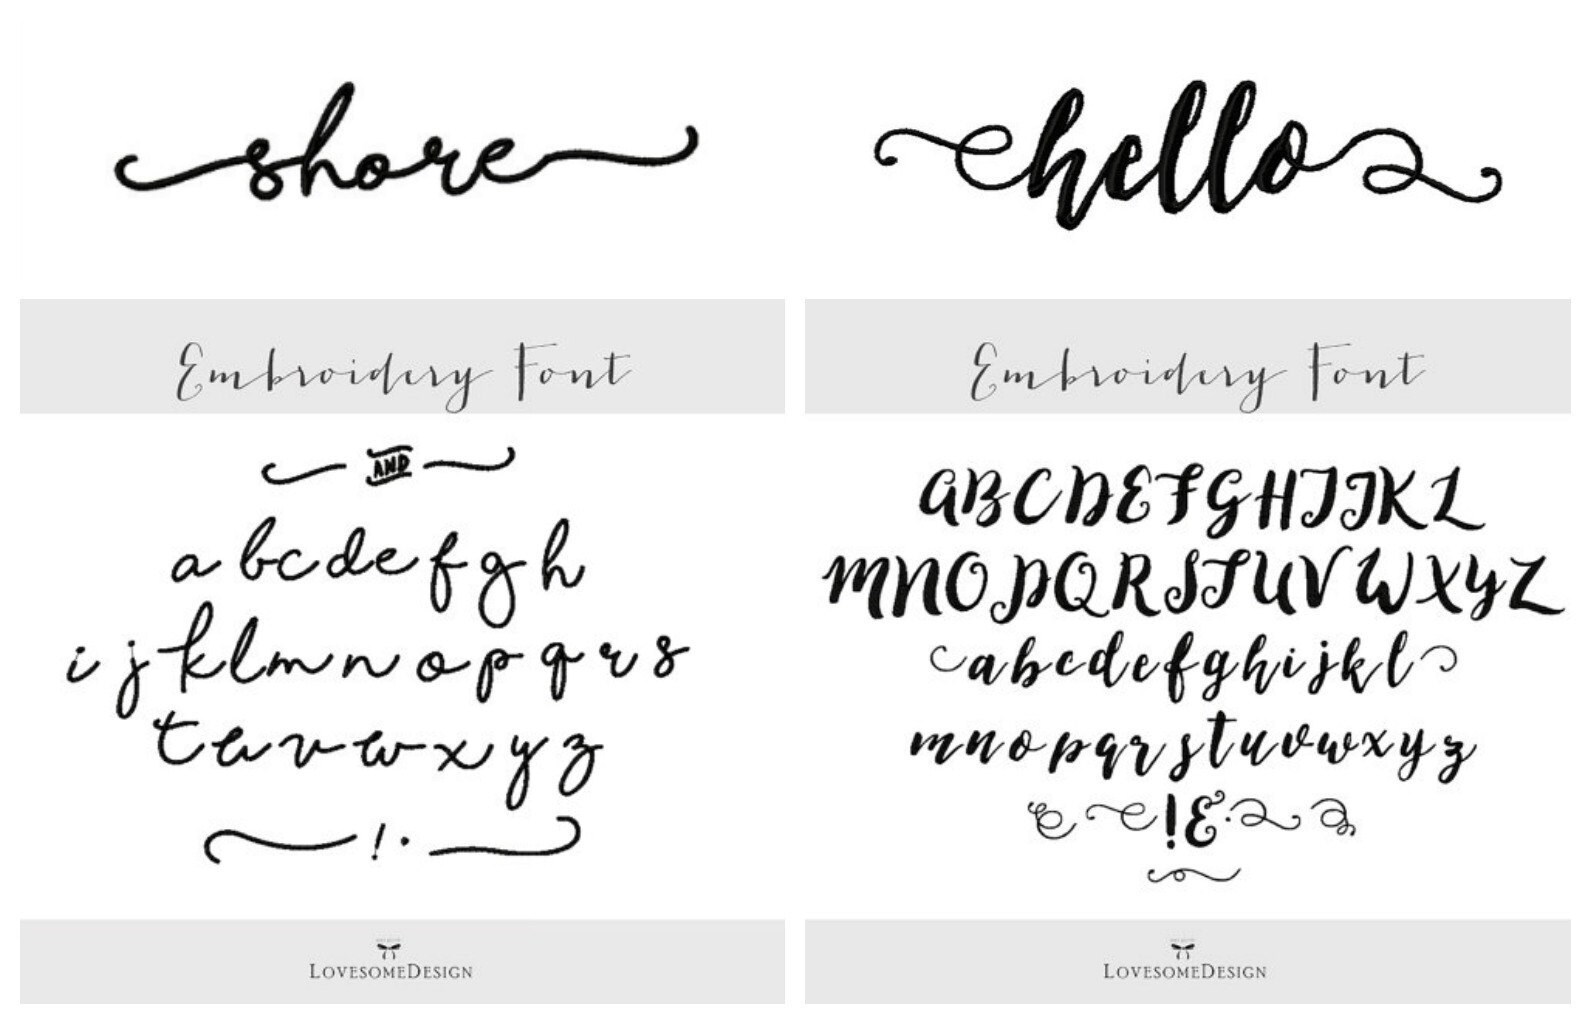 shore
Embroidery Font
AND
a b c d e f g h
i j k l m n o p q r s
t u v w x y z
! .
LOVESOMEDESIGN
hello
Embroidery Font
A B C D E F G H I J K L
M N O P Q R S T U V W X Y Z
a b c d e f g h i j k l
m n o p q r s t u v w x y z
! & .
LOVESOMEDESIGN